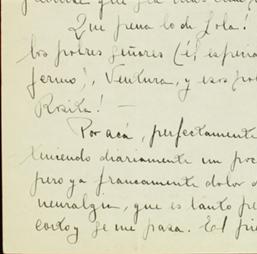 Que pena lo de Lola!
los pobres señores (él especia
fermo), Ventura, y esos po
Rosita! —
Por acá, perfectamente
teniendo diariamente un poc
pero ya francamente dolor d
neuralgia, que es tanto pe
corto y se me pasa. El fri